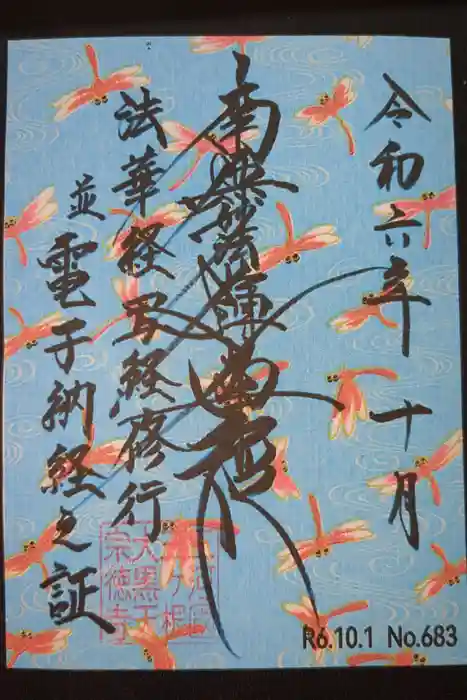 令和六年 十月
南無妙法蓮華経
法華経写経修行
並電子納経之証
三河国
三ヶ根
大黒天
宗徳寺
R6.10.1 No.683